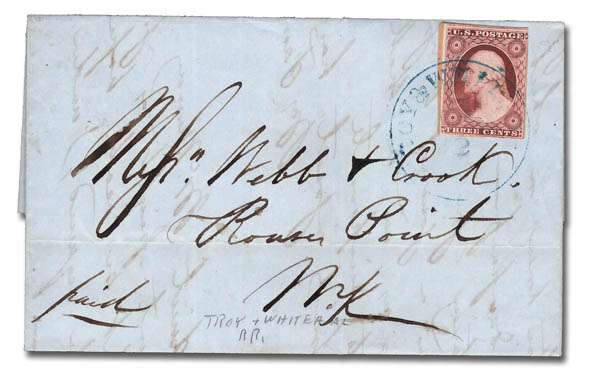 U.S. POSTAGE
THREE CENTS
TROY & WHITE
2
Messrs Webb & Crook.
Rouses Point
N.Y
paid
TROY + WHITEHALL
RR.